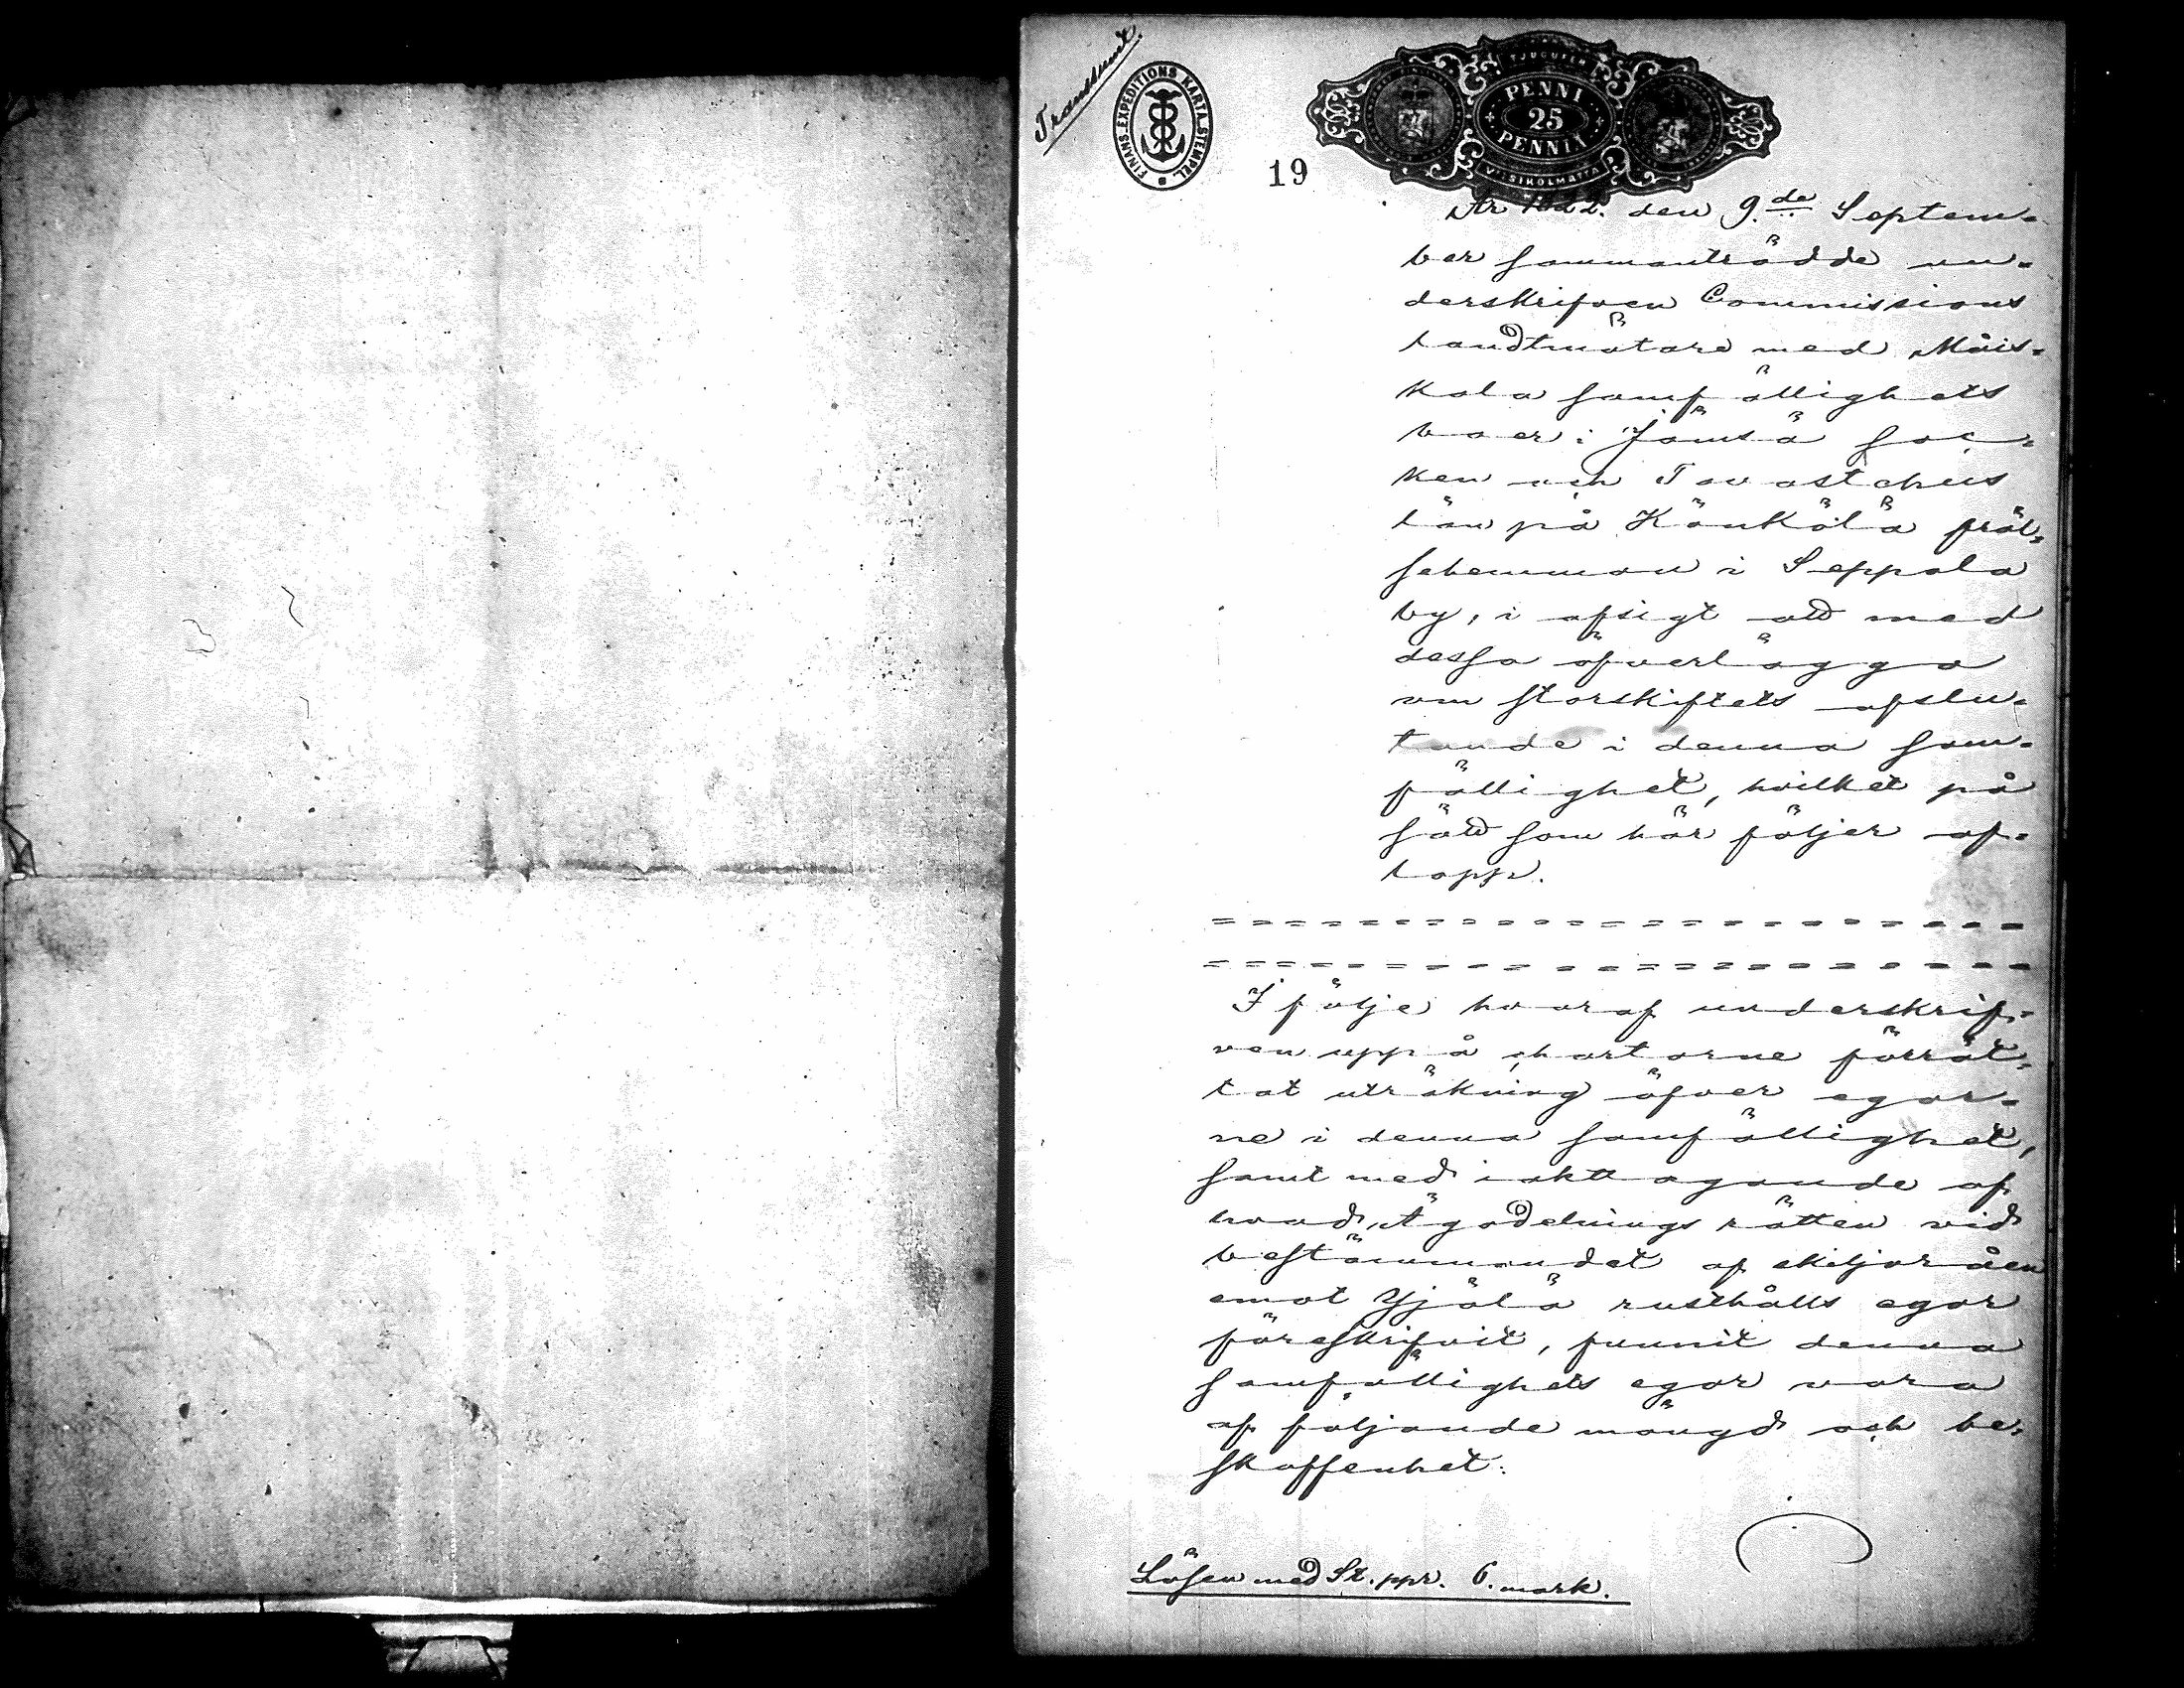 Transsumt.
FINANS-EXPEDITIONS KARTA STEMPEL.
PENNI
25
PENNIÄ
19
År 1822. den 9.de Septem-
ber sammanträdde un-
derskrifven Commissions
Landtmätare med Måis-
kala samfällighets
boer i Jämsä soc-
ken och Tavastehus
län på Känkölä fräl-
sehemman i Seppola
by, i afsigt att med
dessa öfverlägga
om storskiftets afslu-
tande i denna sam-
fällighet, hvilket på
sätt som här följer af-
lopp.
I följe hvaraf underskrif-
ven uppå chartorne förrät-
tat uträkning öfver egor-
ne i denna samfällighet,
samt med iakttagande af
hvad Ägodelnings rätten vid
bestämmandet af skiljoråen
emot Yjälä rusthålls egor
föreskrifvit, funnit denna
samfällighets egor vara
af följande mängd och be-
skaffenhet:
Lösen med St. ppr. 6. mark.